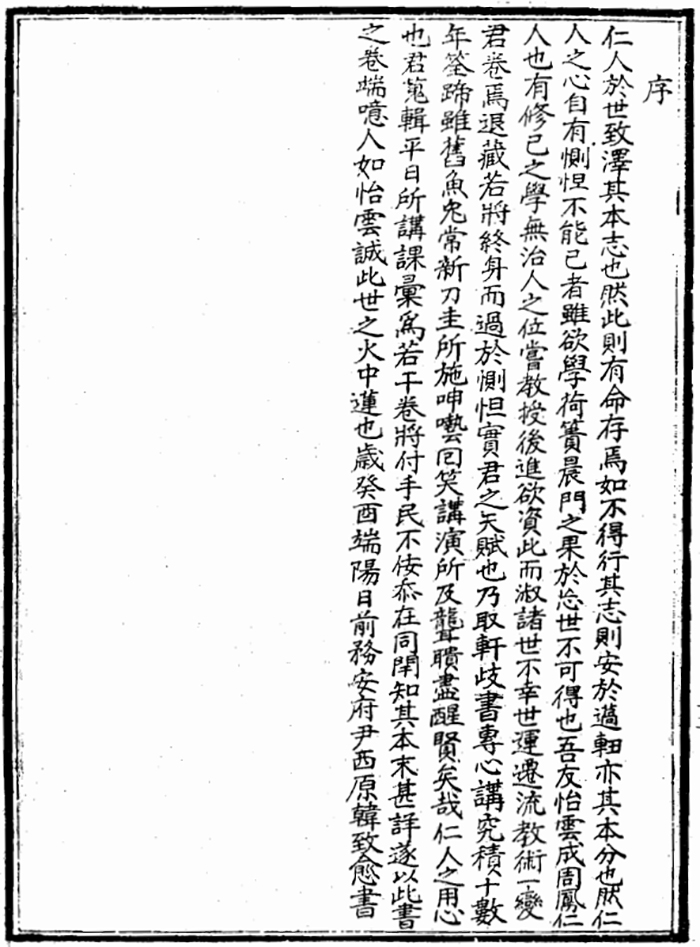 序
仁人於世致澤其本志也然此則有命存焉如不得行其志則安於薖軸亦其本分也然仁
人之心自有惻怛不能已者雖欲學荷蕢晨門之果於忘世不可得也吾友怡雲成周鳳仁
人也有修己之學無治人之位嘗教授後進欲資此而淑諸世不幸世運遷流教術一變
君卷焉退藏若將終身而過於惻怛實君之天賦也乃取軒歧書專心講究積十數
年筌蹄雖舊魚兔常新刀圭所施呻囈回笑講演所及聾聵盡醒賢矣哉仁人之用心
也君蒐輯平日所講課彙爲若干卷將付手民不佞忝在同閈知其本末甚詳遂以此書
之卷端噫人如怡雲誠此世之火中蓮也歲癸酉端陽日前務安府尹西原韓致愈書